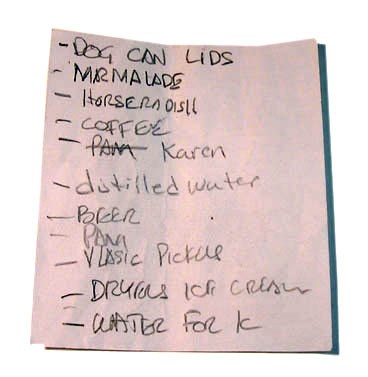 - DOG CAN LIDS
- MARMALADE
- HORSERADISH
- COFFEE
- PAM Karen
- distilled water
- BEER
PAM
- VLASIC PICKLES
- DREYERS ICE CREAM
- WATER FOR K